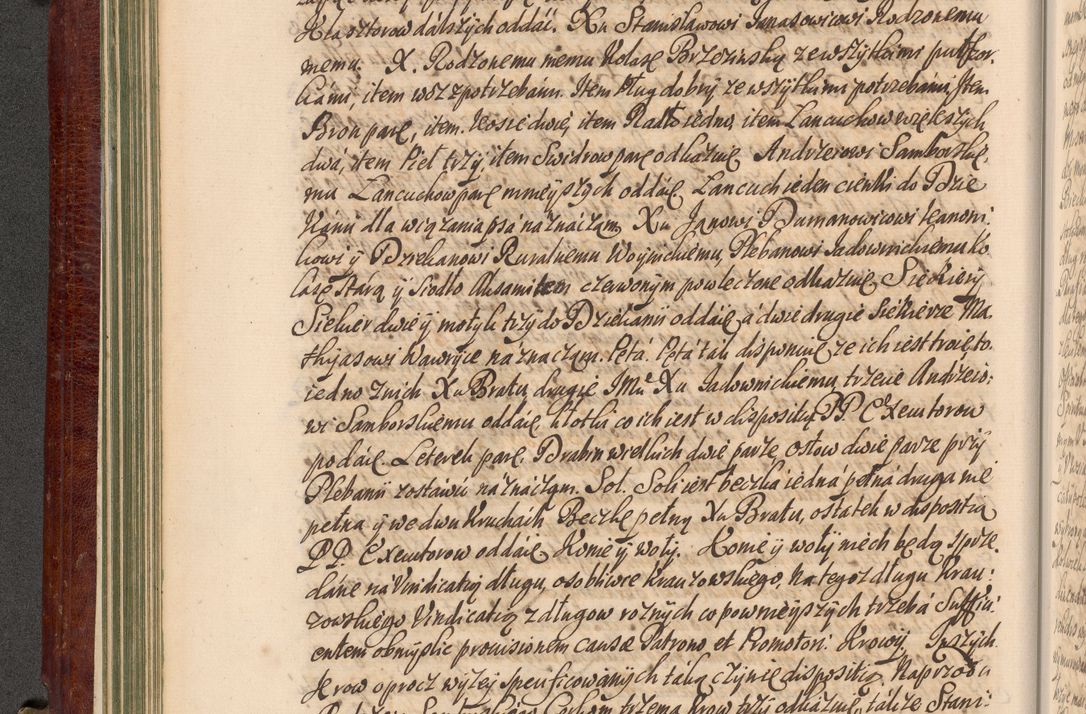 Klasztorow dalszych oddać. Xu Stanisławowi Janasowicowi Rodzonemu
memu. X. Rodzonemu memu Kolasę Brzezinską ze wszytkiemi puszkor,
kami, item wóz z potrzebami. Item Pług dobry ze wszytkiemi potrzebami, Item
Bron parę, item Kosie dwie, item Radło iedno, item Łancuchow większych
dwá, item Pieł trzy, item Swidrow parę odkazuię. Andrzeiowi Samborskie,
mu Łancuchow parę mnieyszych oddaię Łancuch ieden cienki do Dzie
kánii dla wiązania psá náznáczam. Xu Janowi Dumanowicowi Kanoni
kowi y Dziekanowi Ruralnemu Woynickiemu, Plebanowi Jadownickiemu ko
lasę starą y Siodło Aksamitem czerwonym powleczone odkazuię. Siekiery
Siekier dwie y motyk trzy do Dziekanii oddaię, a dwie drugie Siekierze Ma,
thyasowi Wawryce náznaczam. Pętá. Pętá ták disponuię, ze ich iest troie, to
iedno z nich Xu Bratu, drugie JMc Xu Jadownickiemu, trzecie Andrzeio,
wi Samborskiemu oddaię, kłotki co ich iest w disposityą PP. Exekutorow
podaię. Leterek parę, Drabin wielkich dwie parze, ostow dwie parze przy
Plebanii zostawić náznáczam. Sol. Soli iest beczka iedná pełná druga nie
pełna y we dwu Kruchach. Beczkę pełną Xu Bratu, ostatek w dispositią
PP. Exekutorow oddaię. Konie y woły. Konie y woły niech będą sprze
dane na Vindicatią długu, osobliwie Krauzowskiego, na tegoż długu Krau:
zowskiego Vindicatią z długow roznych co pownieyszych trzebá Suffici
entem obmyslic provisionem causæ Patrono, et Promotori. Krowy. Inszych
Krow oprocz wyżey specificowanych taką czynię dispositią. Naprzod
trzema Krow trzy odkazuię, także Stani: